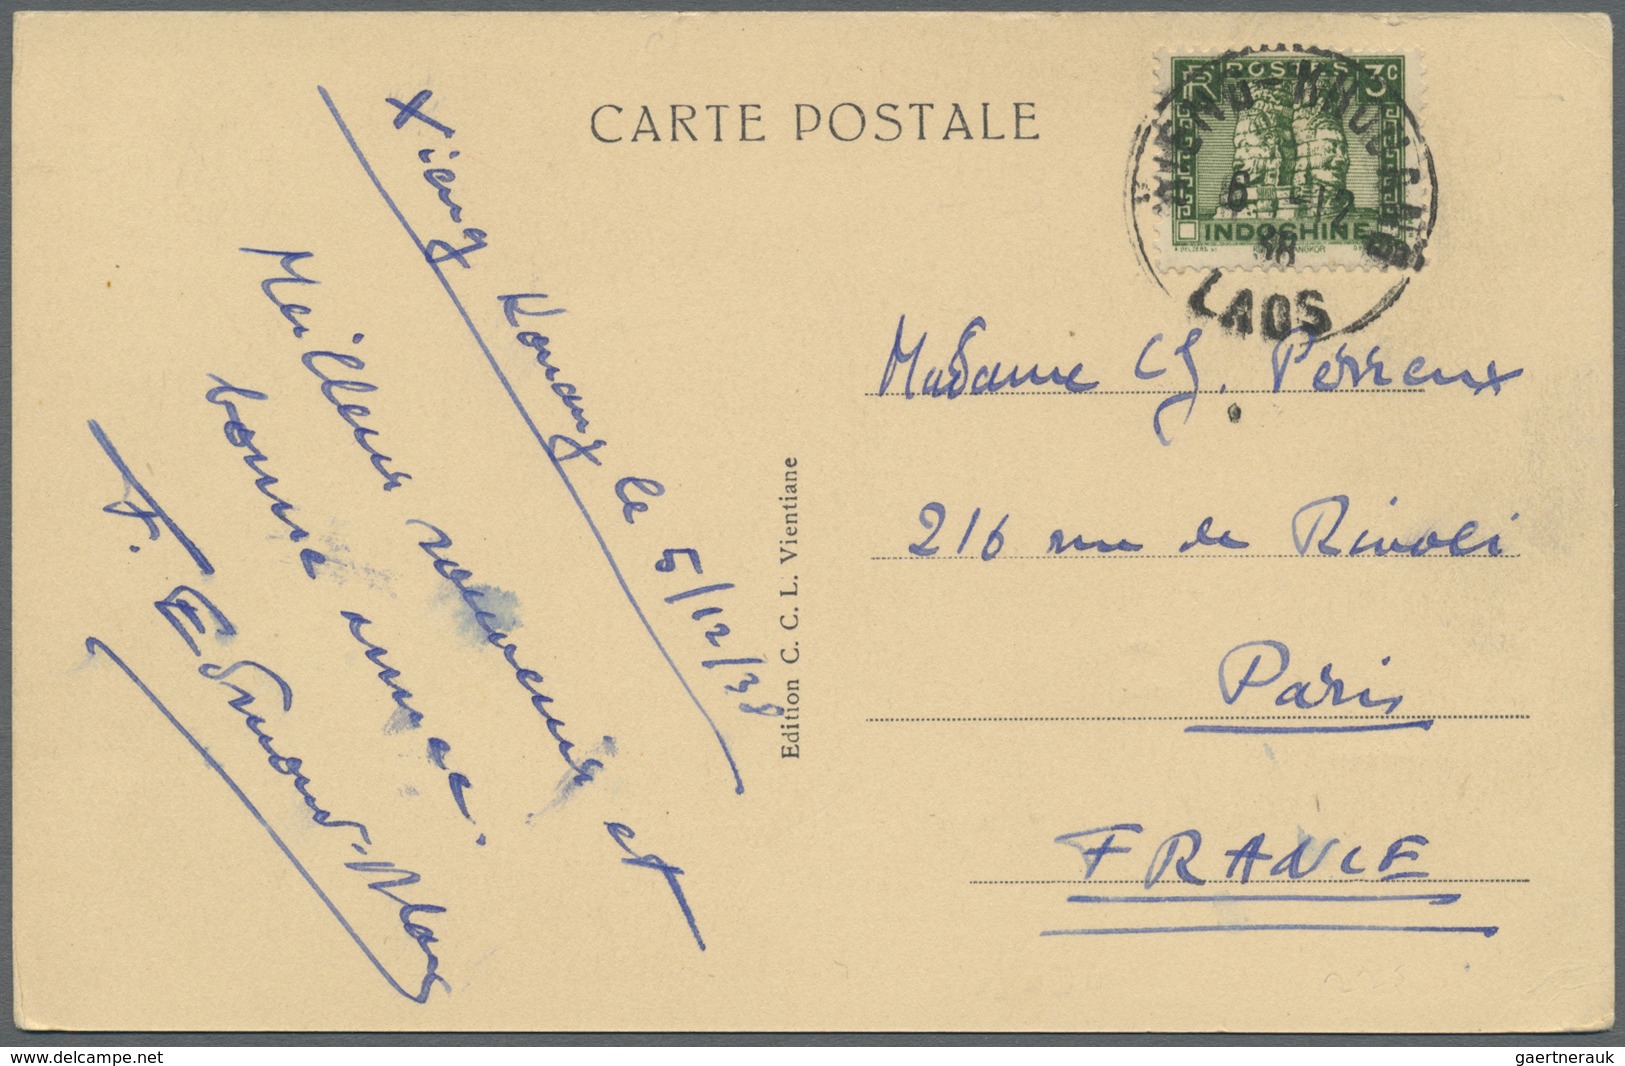 CARTE POSTALE
POSTES
3c
INDOCHINE
XIENG-KHOUANG
6 -12
38
LAOS
Xieng Kouang le 5/12/38
Meilleurs souvenirs et
bonne année.
F. Edmond-Blanc
Edition C. C. L. Vientiane
Madame Perreux
216 rue de Rivoli
Paris
FRANCE
www.delcampe.net
gaertnerauk